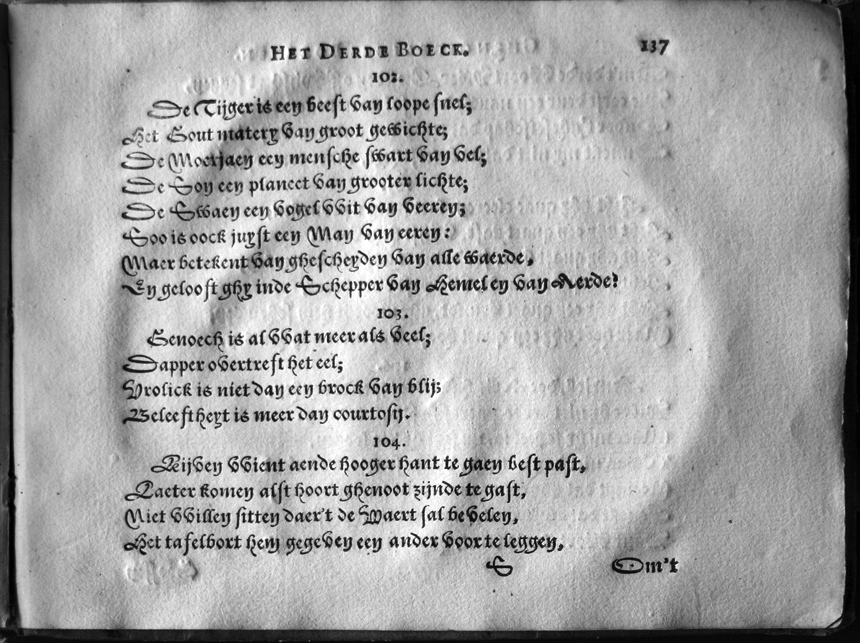 HET DERDE BOECK. 137
102.
De Tijger is een beest van loope snel;
Het Gout matery van groot gewichte;
De Moerjaen een mensche swart van vel;
De Son een planeet van grooter lichte;
De Swaen een vogel vvit van veeren;
Soo is oock juyst een Man van eeren:
Maer betekent van ghescheyden van alle waerde,
En gelooft ghy inde Schepper van Hemel en van Aerde?
103.
Genoech is al vvat meer als veel;
Dapper overtreft het eel;
Vrolick is niet dan een brock van blij;
Beleeftheyt is meer dan courtosij.
104.
Kijven vvient aende hooger hant te gaen best past,
Laeter komen alst hoort ghenoot zijnde te gast,
Niet vvillen sitten daer't de Waert sal bevelen,
Het tafelbort hem gegeven een ander voor te leggen,
S Om't